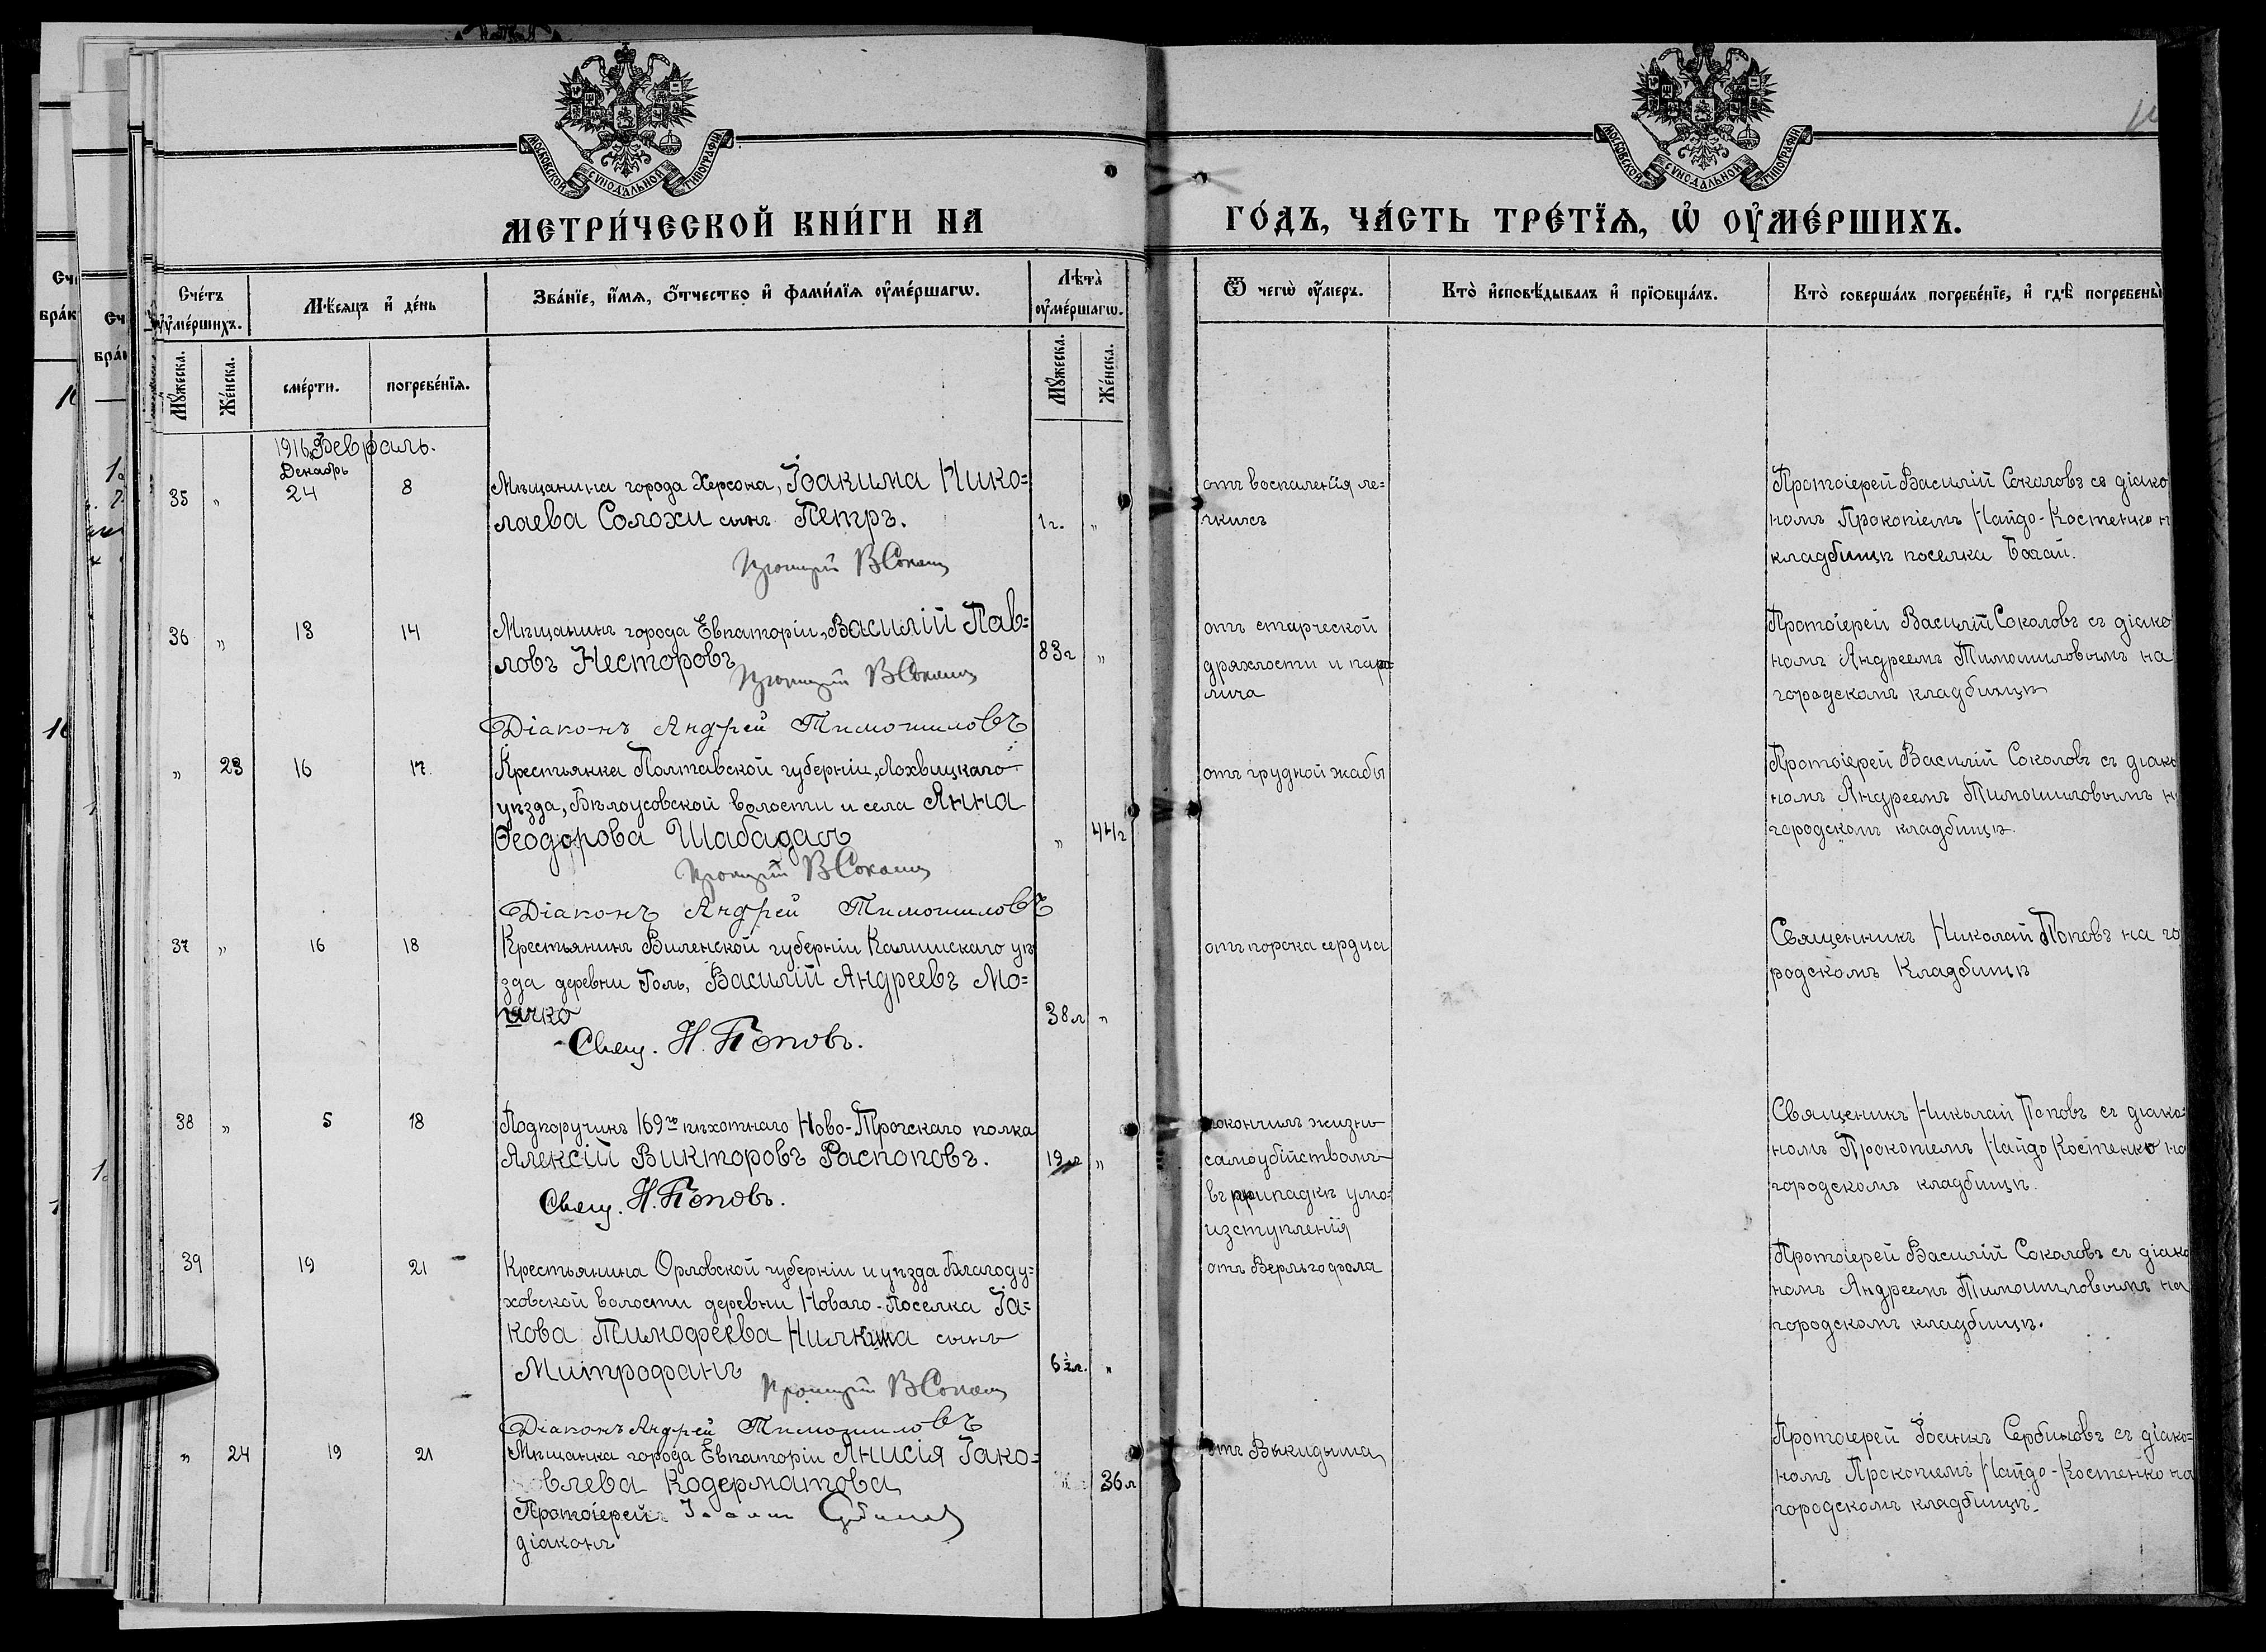 МОСКОВСКОЙ СѴНОДАЛЬНОЙ ТИПОГРАФІИ
МОСКОВСКОЙ СѴНОДАЛЬНОЙ ТИПОГРАФІИ
МЕТРИ́ЧЕСКОЙ КНИ́ГИ НА
ГО́ДЪ, ЧА́СТЬ ТРЕ́ТЇѦ, Ѡ҆ ОУ҆МЕ́РШИХЪ.
Сче́тъ оу҆ме́ршихъ.
Мѣ́сяцъ и҆ де́нь
Зва́нїе, и҆́мя, ѻ҆́тчество и҆ фами́лїя оу҆ме́ршагѡ.
Лѣта̀ оу҆ме́ршагѡ.
Ѿ чегѡ̀ оу҆́меръ.
Кто̀ и҆сповѣ́дывалъ и҆ прїѻбща́лъ.
Кто̀ соверша́лъ погребе́нїе, и҆ гдѣ̀ погребены̀
Мꙋ́жеска.
Же́нска.
сме́рти.
погребе́нїя.
Мꙋ́жеска.
Же́нска.
1916 Февраль.
Декабрь
35 „ 24 8 Мѣщанина города Херсона, Іоакима Нико=
лаева Солохи сынъ Петръ. 1 г. „
Протоіерей В Соколов
отъ воспаленія ле=
гкихъ
Протоіерей Василій Соколовъ съ діако
номъ Прокопіемъ Найдо-Костенко н
кладбищѣ поселка Богай.
36 „ 13 14 Мѣщанинъ города Евпаторіи, Василій Пав=
ловъ Несторовъ 83 г „
Протоіерей В Соколов
Діаконъ Андрей Тимошиловъ
отъ старческой
дряхлости и пара=
лича
Протоіерей Василій Соколовъ съ діако
номъ Андреемъ Тимошиловымъ на
городскомъ кладбищѣ
„ 23 16 17 Крестьянка Полтавской губерніи, Лохвицкаго
уѣзда, Бѣлоусовской волости и села Анна
Ѳеодорова Шабадаслъ „ 44 г
Протоіерей В Соколов
Діаконъ Андрей Тимошиловъ
отъ грудной жабы
Протоіерей Василій Соколовъ съ діако
номъ Андреемъ Тимошиловымъ н
городскомъ кладбищѣ.
37 „ 16 18 Крестьянинъ Виленской губерніи уѣ
зда деревни Голь, Василій Андреевъ Мо=
38 л „
Свящ. Н. Поповъ.
отъ порока сердца
Священникъ Николай Поповъ на го
родскомъ Кладбищѣ
38 „ 5 18 Подпоручикъ 169го пѣхотнаго Ново-Трокскаго полка
Алексій Викторовъ Распоповъ. 19 л „
Свящ. Н. Поповъ.
покончилъ жизнь
самоубійствомъ
въ припадкѣ умо=
изступленія
Священикъ Николай Поповъ съ діако=
номъ Прокопіемъ Найдо Костенко на
городскомъ кладбищѣ.
39 19 21 Крестьянина Орловской губерніи и уѣзда Благоду=
ховской волости деревни Новаго-Поселка Іа=
кова Тимофеева сынъ
Митрофанъ 6½ л. „
Протоіерей В Соколов
Діаконъ Андрей Тимошиловъ
отъ Верльгофрола
Протоіерей Василій Соколовъ съ діако
номъ Андреемъ Тимошиловымъ на
городскомъ кладбищѣ.
„ 24 19 21 Мѣщанка города Евпаторіи Анисія Іако=
влева Кодерматова 36 л
Протоіерей Іоаннъ Сербиновъ
діаконъ
отъ Выкидыша
Протоіерей Іоаннъ Сербиновъ съ діако=
номъ Прокопіемъ Найдо-Костенко на
городскомъ кладбищѣ.